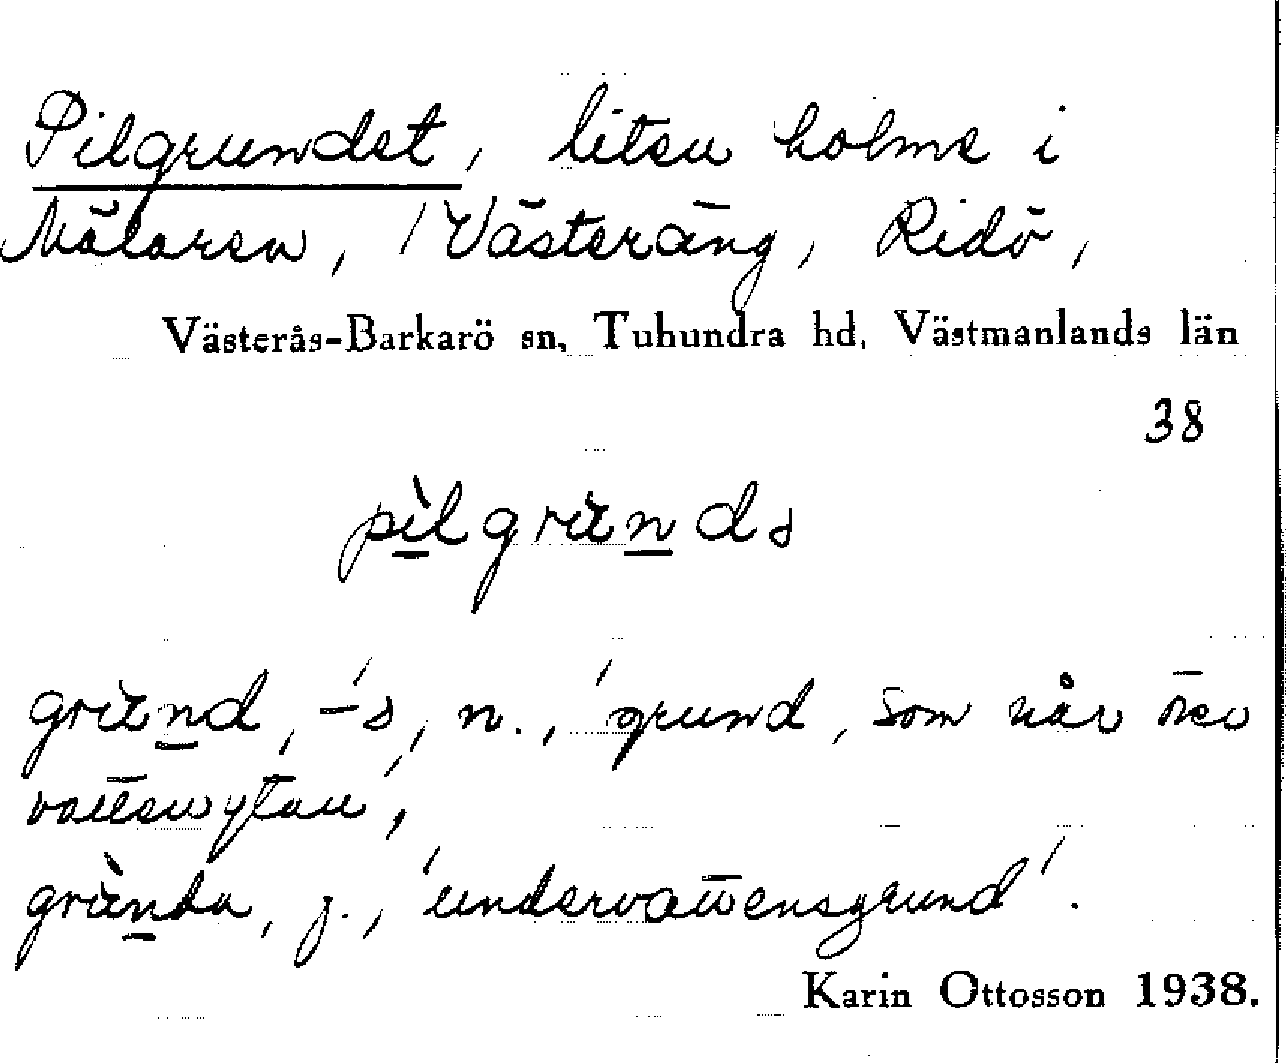 Pilgrundet, liten holme i
Mälaren, / Västeräng, Ridö,
Västerås-Barkarö sn, Tuhundra hd, Västmanlands län
38
pìlgrùndə
grùnd, -ə, n., 'grund, som når över
vattenytan',
grùnda, f., 'undervattensgrund'.
Karin Ottosson 1938.